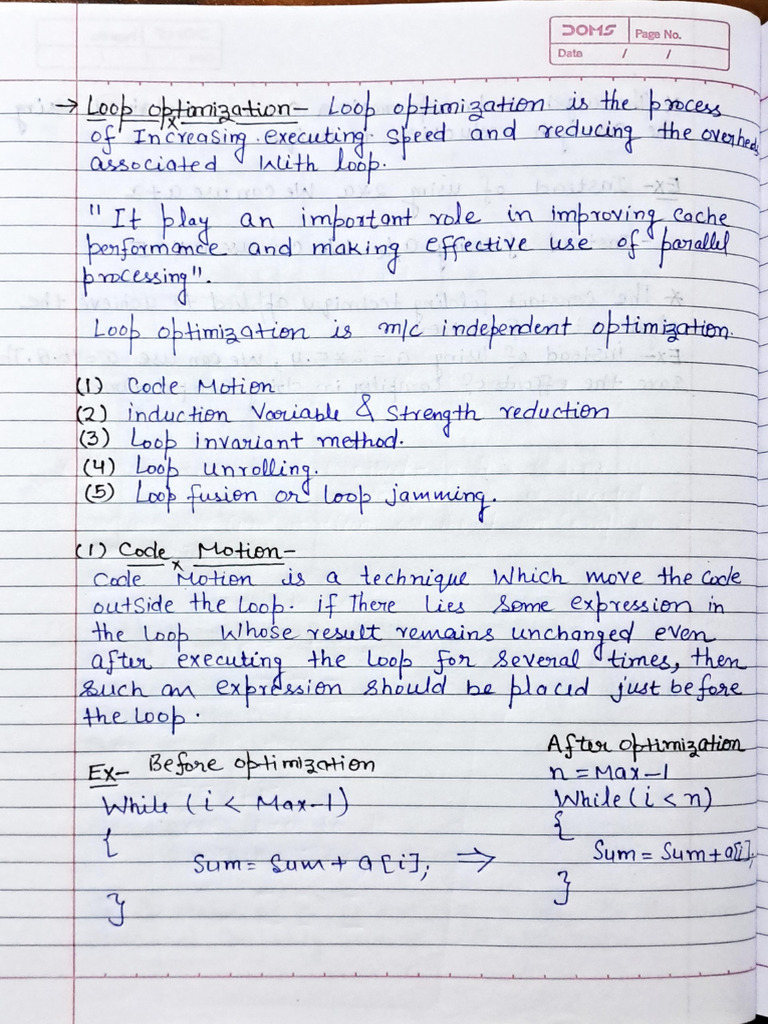 DOMS Page No.
Date / /
→ Loop optimization- Loop optimization is the process
of Increasing executing speed and reducing the overheds
associated With loop.
"It play an important role in improving cache
performance and making effective use of parallel
processing".
Loop optimization is m/c independent optimization.
(1) Code Motion
(2) induction Variable & Strength reduction
(3) Loop invariant method.
(4) Loop unrolling.
(5) Loop fusion or loop jamming.
(1) Code Motion-
Code Motion is a technique Which move the code
outside the Loop. if There lies Some expression in
the loop Whose result remains unchanged even
after executing the Loop for Several times, then
Such an expression should be placed just before
the Loop.
After optimization
Ex- Before optimization n = Max-1
While (i < Max-1) While (i < n)
{ {
Sum = Sum + a[i]; ⇒ Sum = Sum + a[i];
} }